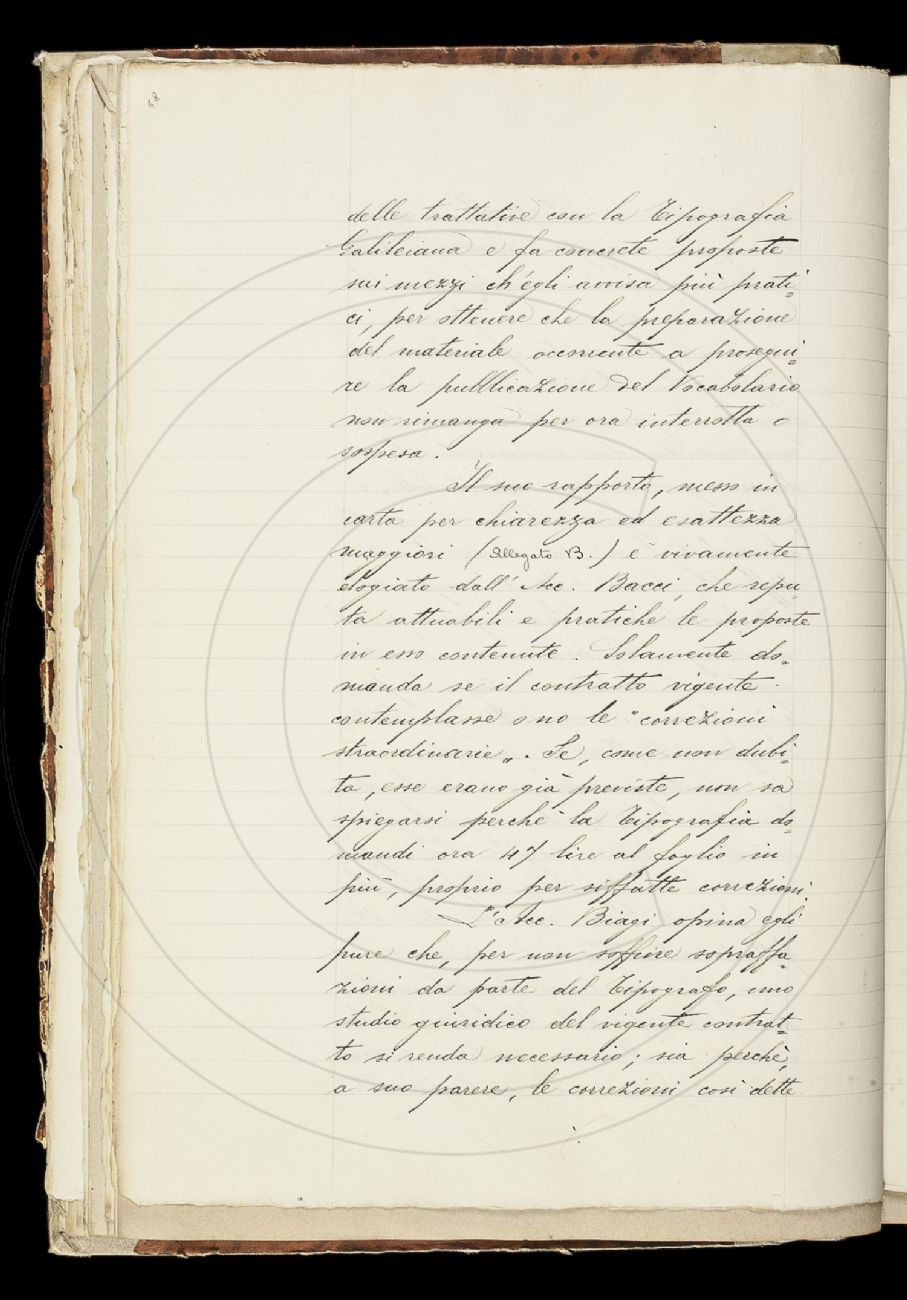 48
delle trattative con la Tipografia
Galileiana e fa concrete proposte
sui mezzi ch'egli avvisa più prati=
ci, per ottenere che la preparazione
del materiale occorrente a prosegui=
re la pubblicazione del Vocabolario
non rimanga per ora interrotta o
sospesa.
Il suo rapporto, messo in
carta per chiarezza ed esattezza
maggiori (Allegato B.) è vivamente
elogiato dall'Acc. Bacci, che repu=
ta attuabili e pratiche le proposte
in esso contenute. Solamente do=
manda se il contratto vigente
contemplasse o no le "correzioni
straordinarie". Se, come non dubi=
ta, esse erano già previste, non sa
spiegarsi perché la Tipografia do=
mandi ora 47 lire al foglio in
più, proprio per siffatte correzioni.
L'Acc. Biagi opina egli
pure che, per non soffrire sopraffa=
zioni da parte del Tipografo, uno
studio giuridico del vigente contrat=
to si renda necessario; sia perchè,
a suo parere, le correzioni così dette